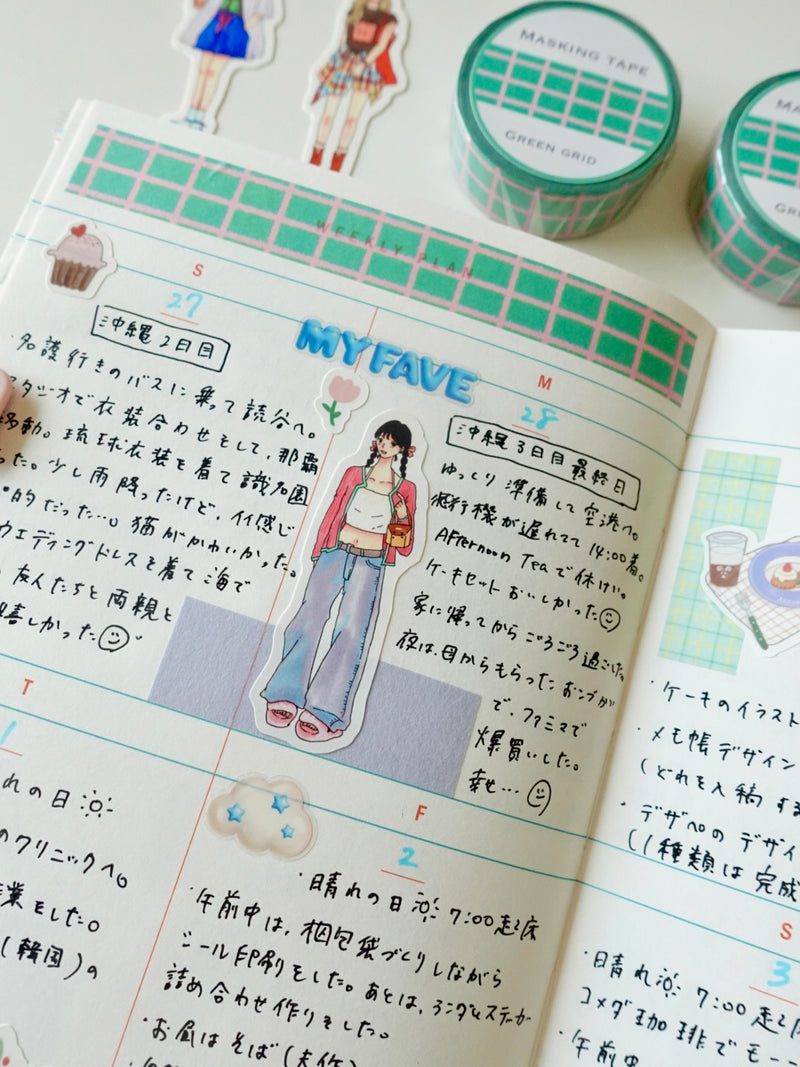 MASKING TAPE
GREEN GRID
MA
GR
WEEKLY PLAN
S
27
沖縄2日目
・名護行きのバスに乗って読谷へ。
スタジオで衣装合わせをして、那覇
移動。琉球衣装を着て識名園
った。少し雨降ったけど、イイ感じ
的だった…。猫がかわいかった。
ウエディングドレスを着て海で
友人たちと両親と
嬉しかった
MY FAVE
M
28
沖縄3日目 最終日
ゆっくり準備して空港へ。
飛行機が遅れてて14:00着。
Afternoon Teaで休けい。
ケーキセットおいしかった
家に帰ってからごろごろ過ごした。
夜は、母からもらったおこづかい
で、ファミマで
爆買いした。
幸せ…
T
1
れの日
のクリニックへ。
業をした。
(韓国)の
F
2
・晴れの日 7:00起床
・午前中は、梱包袋づくりしながら
シール印刷をした。あとは、ランダムステッカー
詰め合わせ作りをした。
・お昼はそば(夫作)
・ケーキのイラスト
・メモ帳デザイン
(どれを入稿する
・デザペのデザイ
(1種類は完成
S
3
・晴れ 7:00起床
コメダ珈琲でモー
・午前中